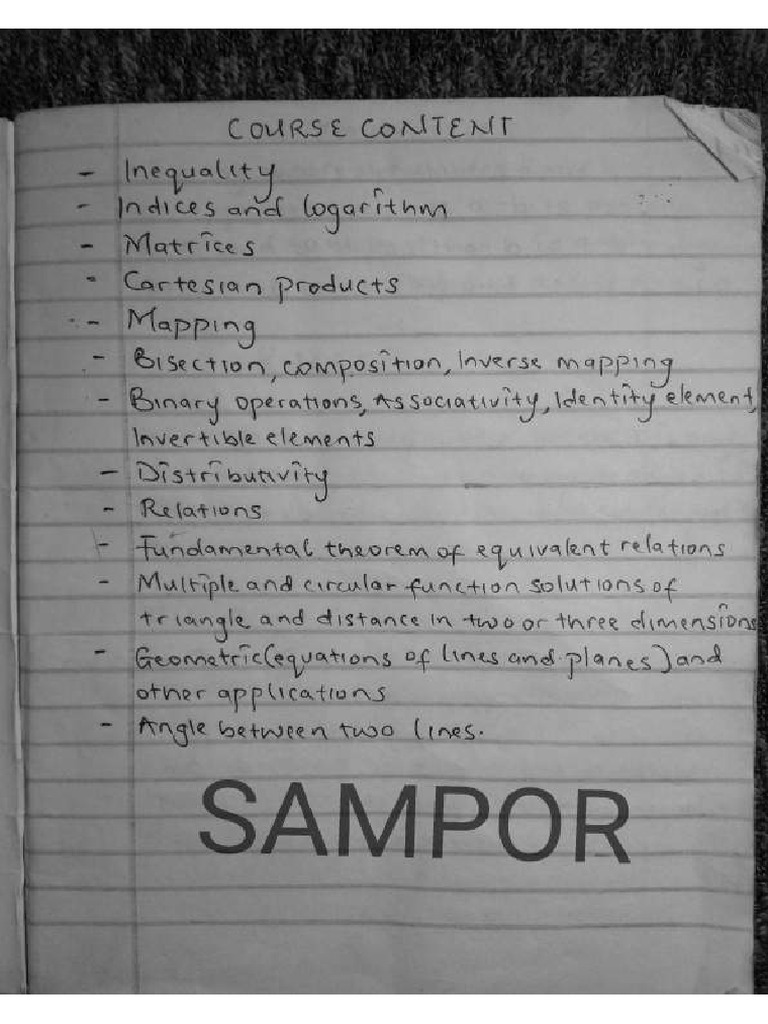 COURSE CONTENT
- Inequality
- Indices and logarithm
- Matrices
- Cartesian products
- Mapping
- Bisection, composition, Inverse mapping
- Binary operations, Associativity, Identity element,
Invertible elements
- Distributivity
- Relations
- Fundamental theorem of equivalent relations
- Multiple and circular function solutions of
triangle and distance in two or three dimensions
- Geometric(equations of lines and planes) and
other applications
- Angle between two lines.
SAMPOR